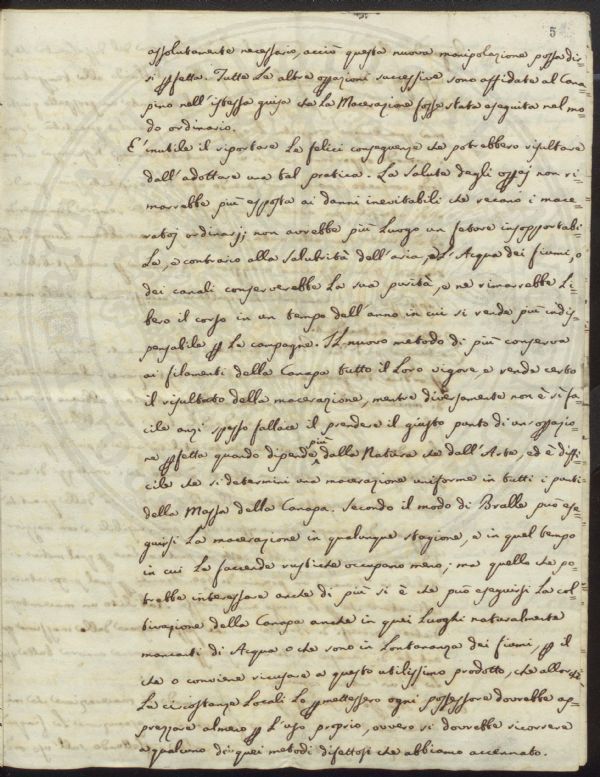 5
assolutamente necessario, acciò questa nuova manipolazione possa dir-
si pfetta. Tutte le altre opazioni successive sono affidate al Cana-
pino nell'istessa guisa che la Macerazione fosse stata eseguita nel mo-
do ordinario.
E' inutile il riportare le felici conseguenze che potrebbero risultare
dall'adottare una tal pratica. La salute degli opaj non ri-
marrebbe più esposta ai danni inevitabili che recano i mace-
ratoj ordinarj; non avrebbe più luogo un fetore insopportabi-
le, e contrario alla salubrità dell'aria, e l'Acqua dei fiumi, o
dei canali conserverebbe la sua purità, e ne rimarrebbe li-
bero il corso in un tempo dell'anno in cui si rende più indis-
pensabile p le campagne. Il nuovo metodo di più conserva
ai filamenti della Canapa tutto il loro vigore, e rende certo
il risultato della macerazione, mentre diversamente non è sì fa-
cile anzi spesso fallace il prendere il giusto punto di un opazio-
ne pfetta quando dipende più dalla Natura che dall'Arte, ed è diffi-
cile che si determini una macerazione uniforme in tutti i punti
della Massa della Canapa. Secondo il modo di Bralle può ese-
guirsi la macerazione in qualunque stagione, e in quel tempo
in cui le faccende rustiche occupano meno; ma quello che po-
trebbe interessare anche di più si è che può eseguirsi la col-
tivazione della Canapa anche in quei luoghi naturalmente
mancanti di Acqua o che sono in lontananza dei fiumi, p il
che o conviene ricusare a questo utilissimo prodotto, che allorchè
le circostanze locali lo pmettessero ogni possessore dovrebbe ap-
prezzare almeno p l'uso proprio, ovvero si dovrebbe ricorrere
a qualcuno di quei metodi difettosi che abbiamo accennato.